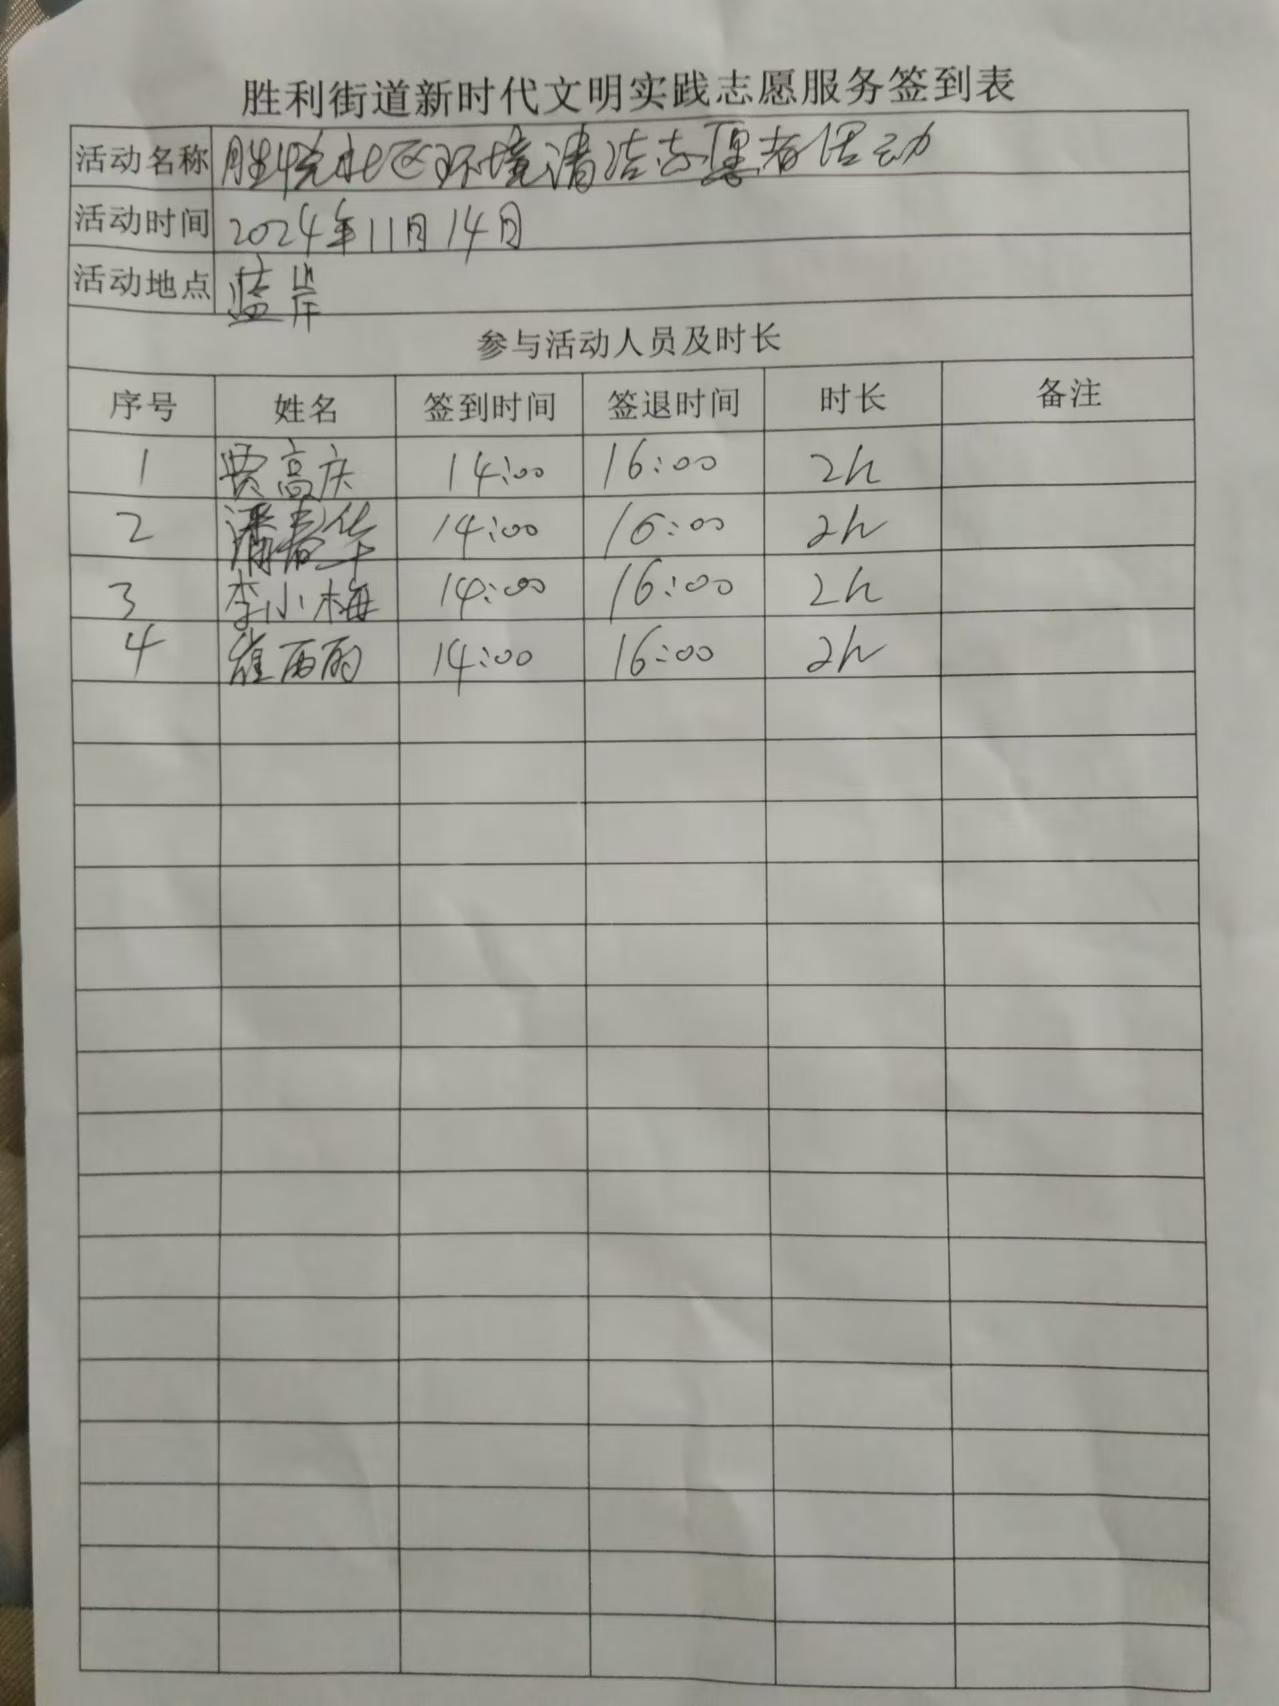 胜利街道新时代文明实践志愿服务签到表
活动名称 胜悦社区环境清洁志愿者活动
活动时间 2024年11月14日
活动地点 蓝岸
参与活动人员及时长
序号 姓名 签到时间 签退时间 时长 备注
1 贾高庆 14:00 16:00 2h
2 潘春华 14:00 16:00 2h
3 李小梅 14:00 16:00 2h
4 崔西雨 14:00 16:00 2h